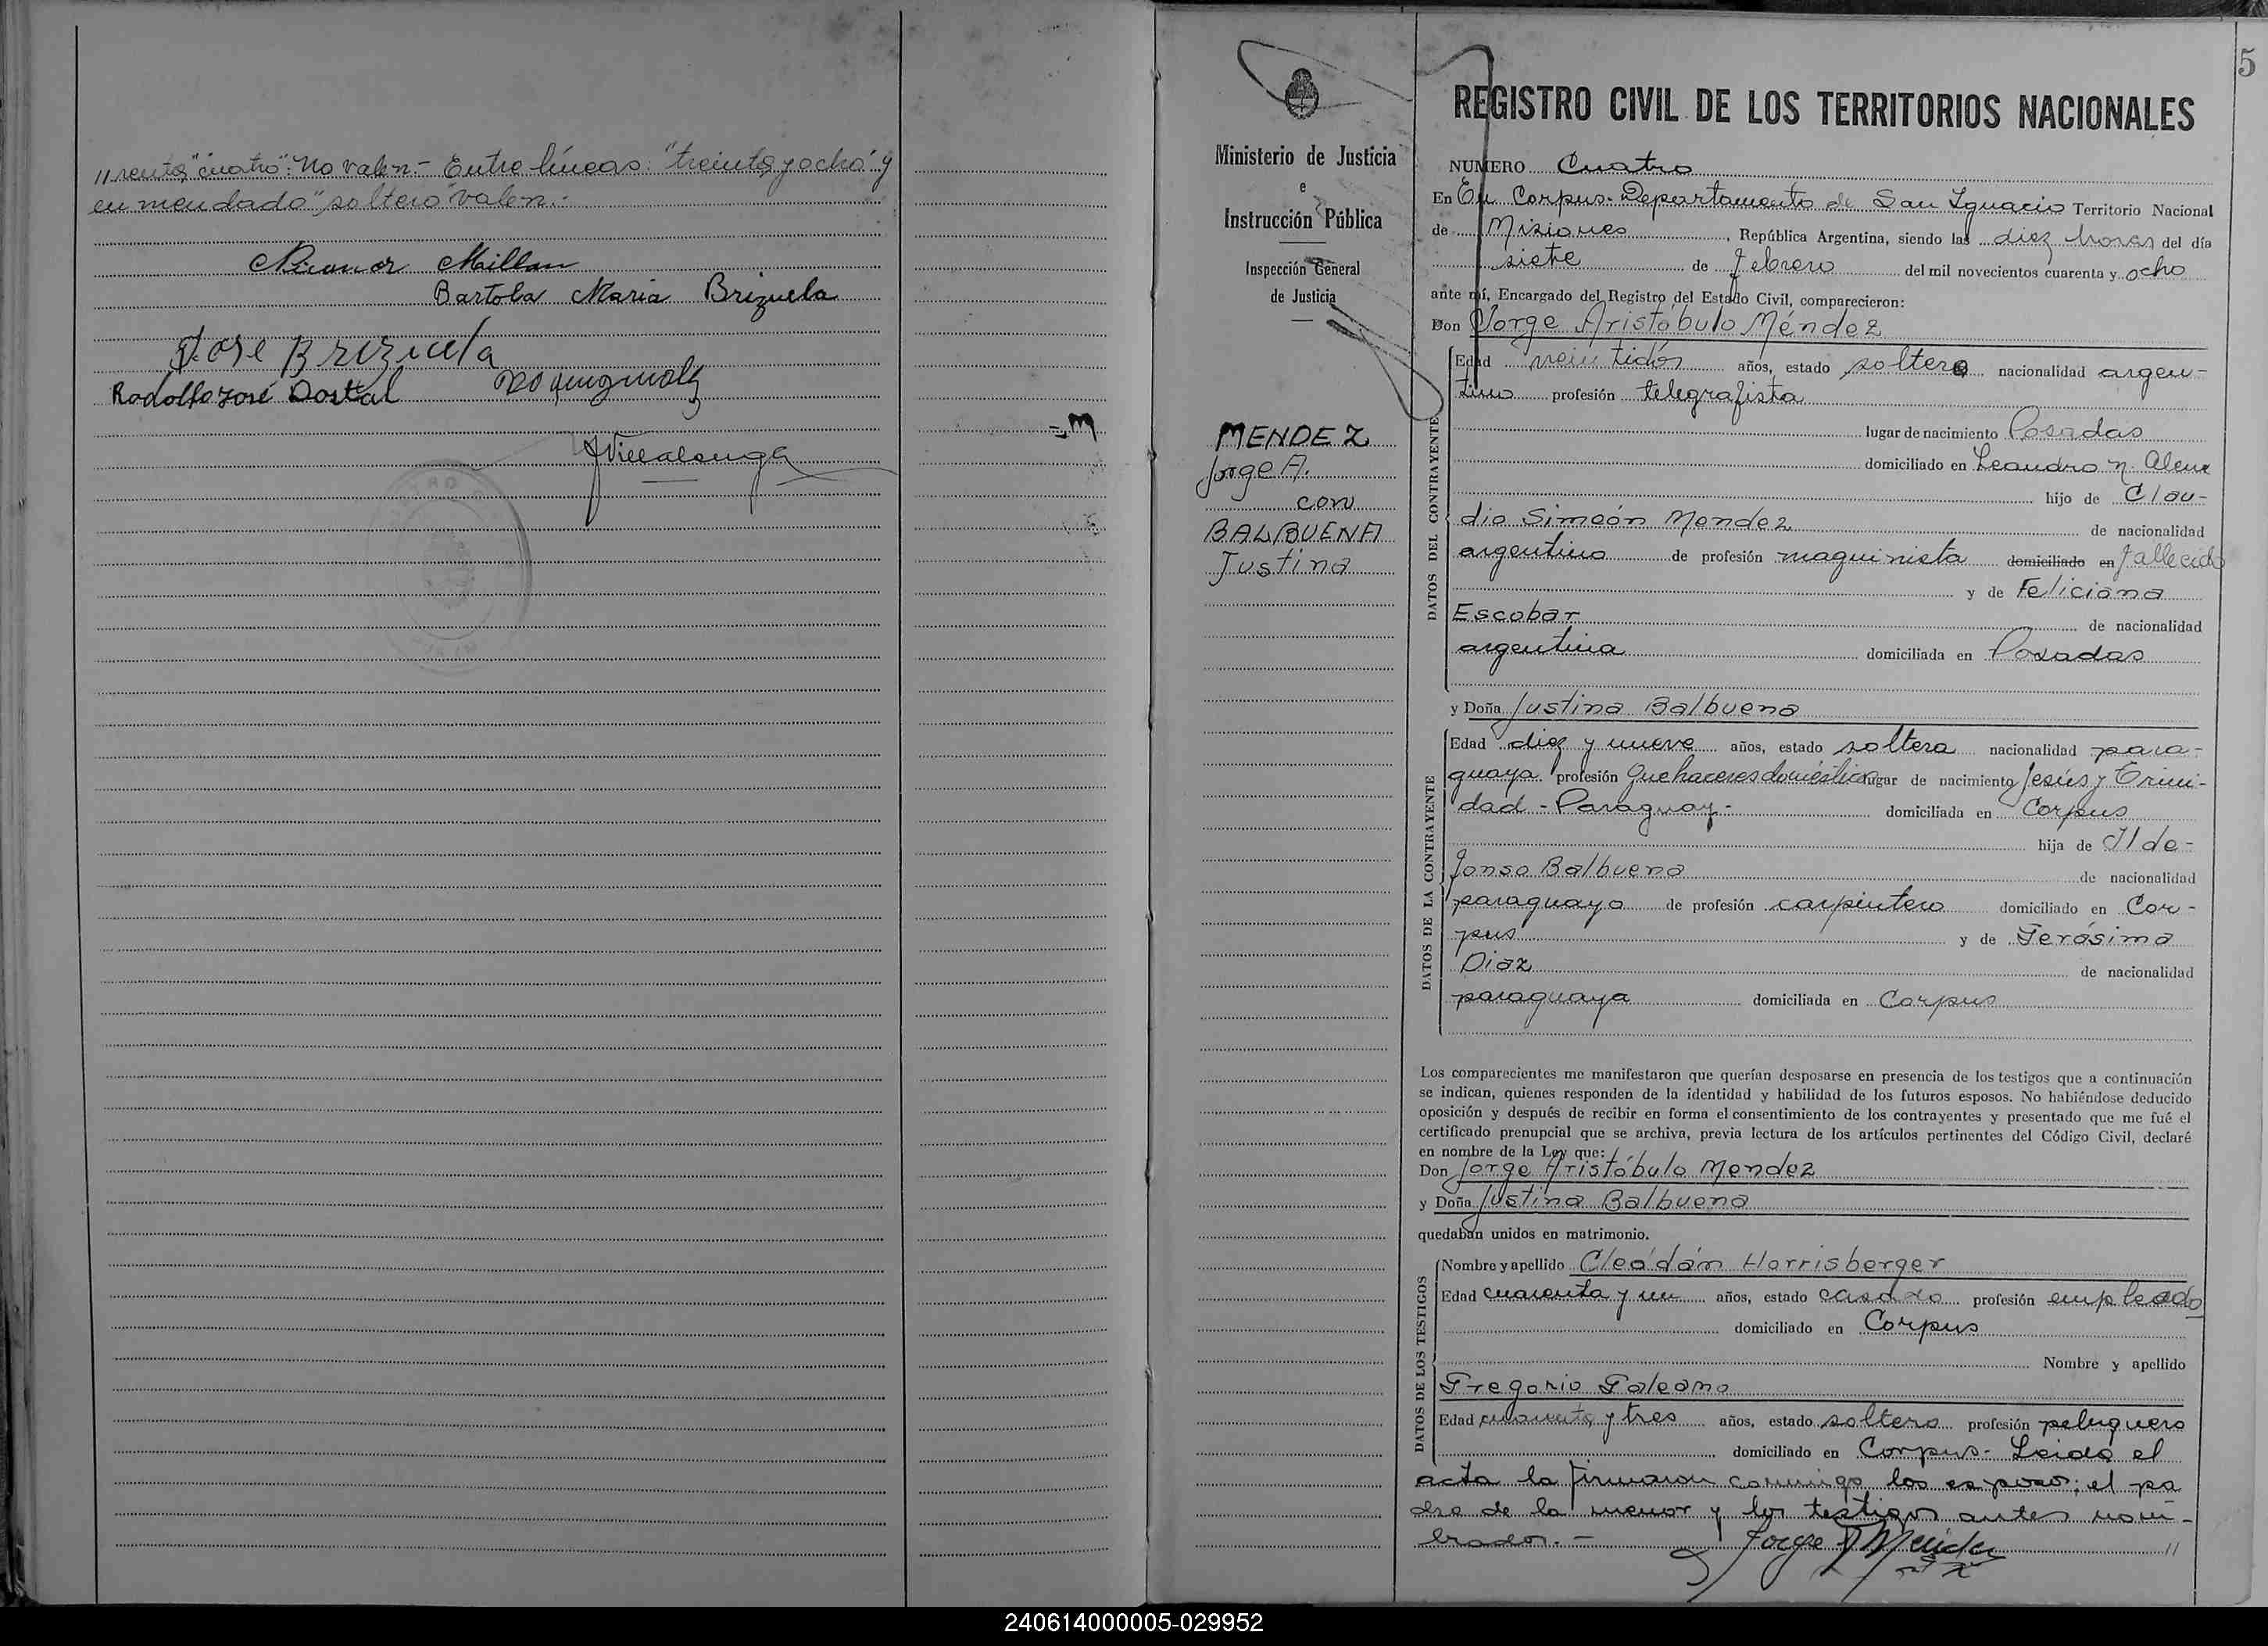 "renta" "cuatro": No valen.- Entre líneas: "treinta y ocho" y
enmendado "soltero" valen.-
Nicanor Millan
Bartola Maria Brizuela
Jose Brizuela
Rodolfo José Dostal
JVillalonga
5
Ministerio de Justicia
e
Instrucción Pública
Inspección General
de Justicia
MENDEZ
Jorge A.
con
BALBUENA
Justina
REGISTRO CIVIL DE LOS TERRITORIOS NACIONALES
NUMERO Cuatro
En En Corpus-Departamento de San Ignacio Territorio Nacional
de Misiones, República Argentina, siendo las diez horas del día
siete de febrero del mil novecientos cuarenta y ocho
ante mí, Encargado del Registro del Estado Civil, comparecieron:
Don Jorge Aristóbulo Méndez
DATOS DEL CONTRAYENTE
Edad veintidós años, estado soltero nacionalidad argen-
tino profesión telegrafista
lugar de nacimiento Posadas
domiciliado en Leandro N. Alem
hijo de Clau-
dio Simeón Mendez de nacionalidad
argentino de profesión maquinista domiciliado en fallecido
y de Feliciana
Escobar de nacionalidad
argentina domiciliada en Posadas
y Doña Justina Balbuena
DATOS DE LA CONTRAYENTE
Edad diez y nueve años, estado soltera nacionalidad para-
guaya profesión Quehaceres domésticos lugar de nacimiento Jesús y Trini-
dad - Paraguay.- domiciliada en Corpus
hija de Ilde-
fonso Balbuena de nacionalidad
paraguayo de profesión carpintero domiciliado en Cor-
pus y de Gerósima
Diaz de nacionalidad
paraguaya domiciliada en Corpus
Los comparecientes me manifestaron que querían desposarse en presencia de los testigos que a continuación
se indican, quienes responden de la identidad y habilidad de los futuros esposos. No habiéndose deducido
oposición y después de recibir en forma el consentimiento de los contrayentes y presentado que me fué el
certificado prenupcial que se archiva, previa lectura de los artículos pertinentes del Código Civil, declaré
en nombre de la Ley que:
Don Jorge Aristóbulo Mendez
y Doña Justina Balbuena
quedaban unidos en matrimonio.
DATOS DE LOS TESTIGOS
Nombre y apellido Cleádán Harrisberger
Edad cuarenta y un años, estado casado profesión empleado
domiciliado en Corpus
Nombre y apellido
Gregorio Galeano
Edad cuarenta y tres años, estado soltero profesión peluquero
domiciliado en Corpus- Leída el
acta la firmaron conmigo los esposos; el pa
dre de la menor y los testigos antes nom-
brados.-
Jorge A Mendez
//
240614000005-029952